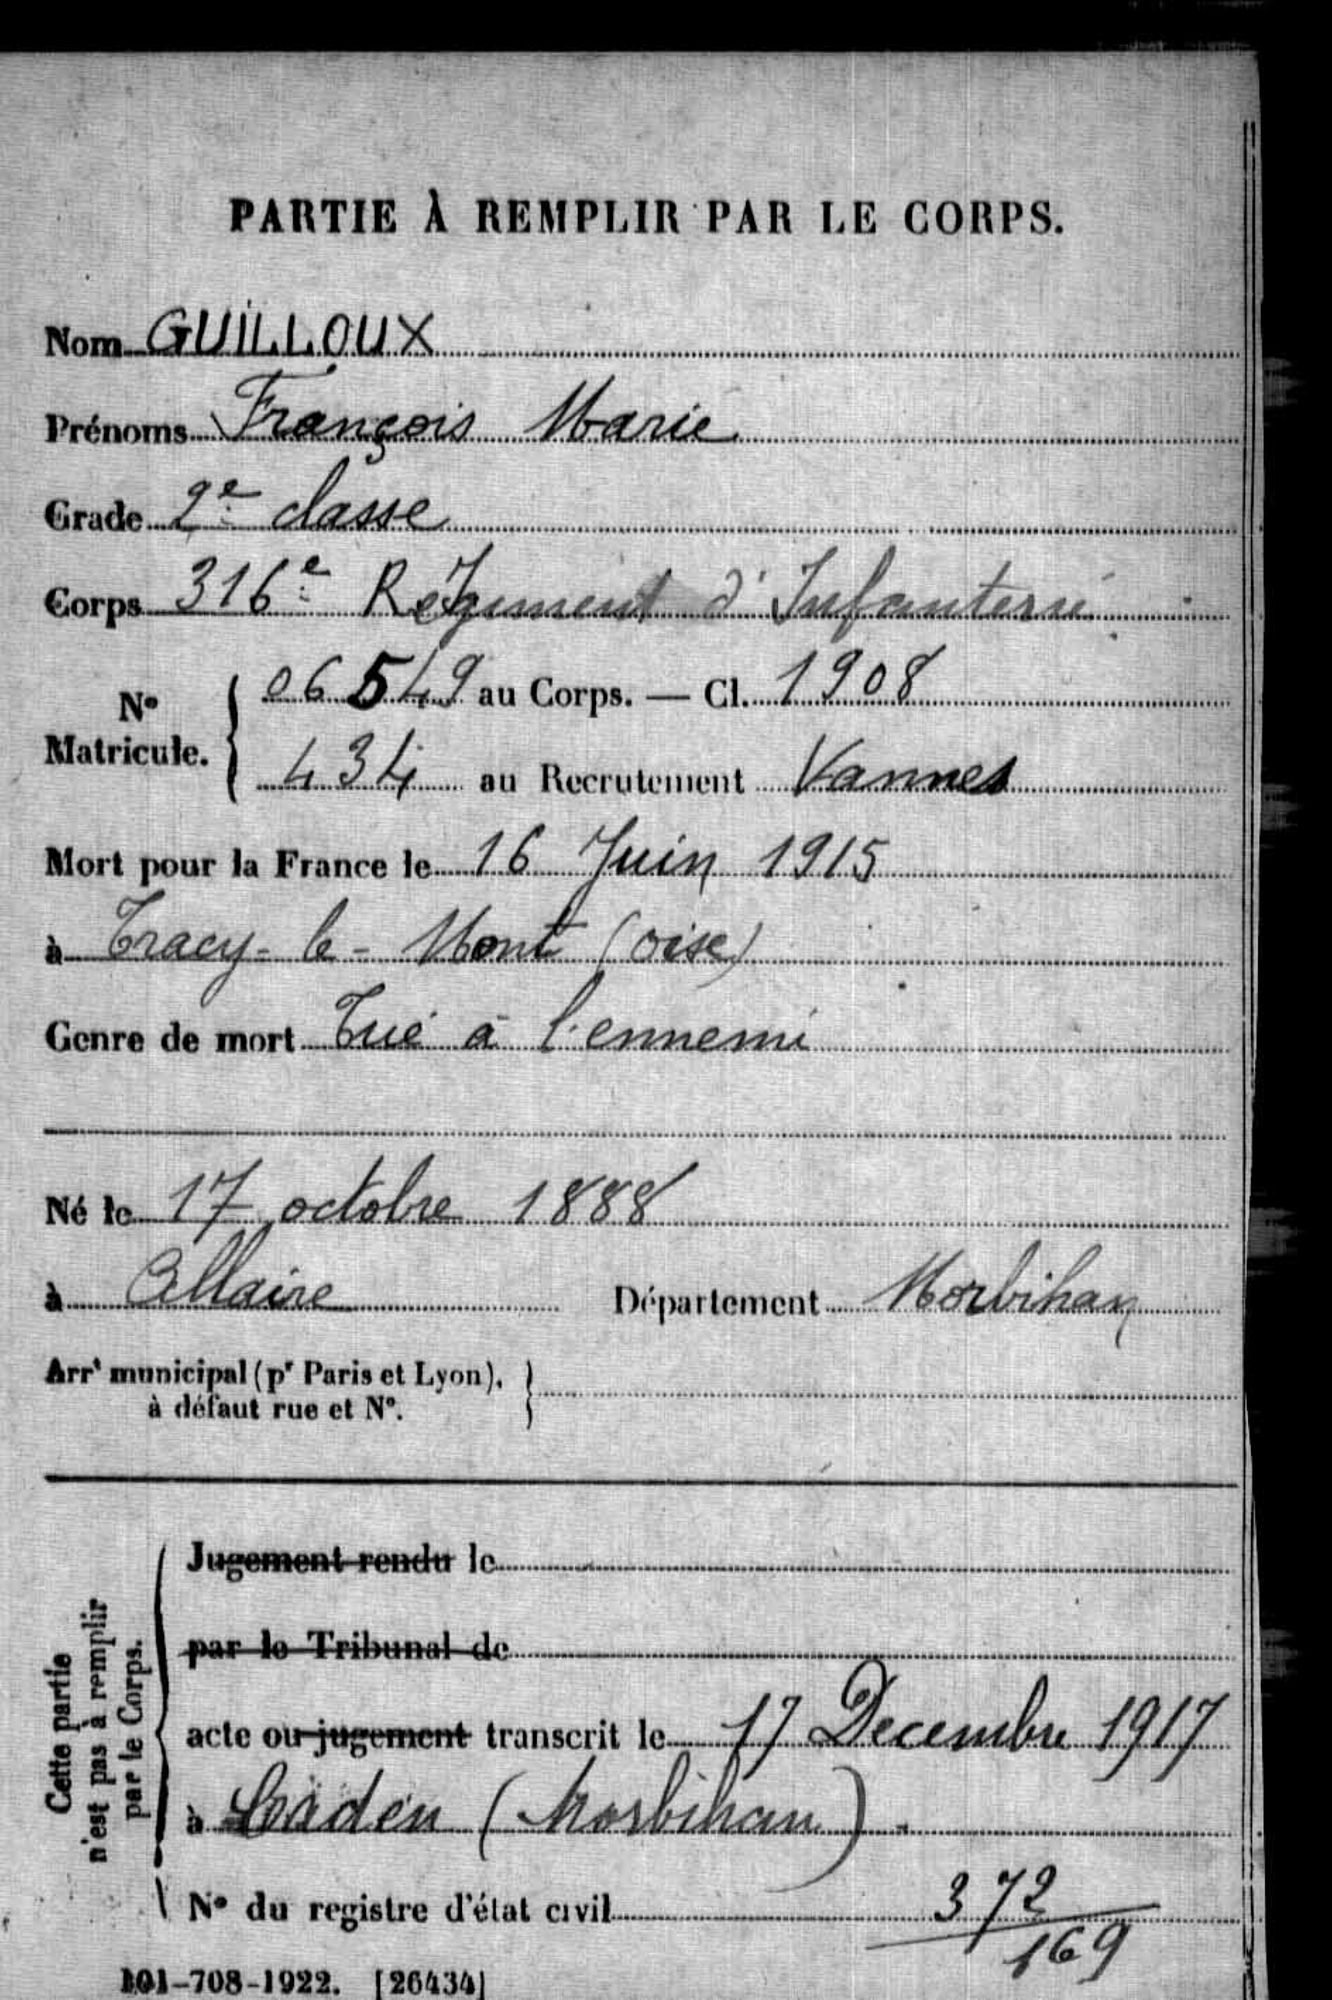 PARTIE À REMPLIR PAR LE CORPS.
Nom GUILLOUX
Prénoms François Marie
Grade 2e classe
Corps 316e Régiment d'Infanterie
No Matricule. { 06549 au Corps. — Cl. 1908
434 au Recrutement Vannes
Mort pour la France le 16 Juin 1915
à Tracy-le-Mont (Oise)
Genre de mort Tué à l'ennemi
Né le 17 octobre 1888
à Allaire Département Morbihan
Arrt municipal (pr Paris et Lyon), }
à défaut rue et No.
Cette partie
n'est pas à remplir
par le Corps.
Jugement rendu le
par le Tribunal de
acte ou jugement transcrit le 17 Decembre 1917
à (Morbihan).
No du registre d'état civil 372
169
101-708-1922. [26434]